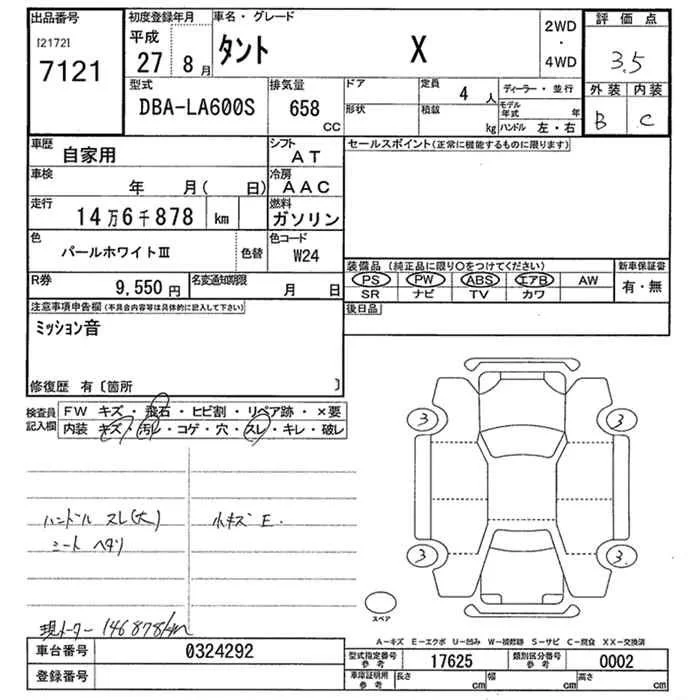 出品番号
[2172]
7121
初度登録年月
平成
27 8月
車名・グレード
タント X
2WD
・
4WD
評価点
3.5
外装 内装
B C
型式
DBA-LA600S
排気量
658
CC
ドア
形状
定員 4 人
積載 kg
ディーラー・並行
モデル年式 年
ハンドル 左・右
車歴 自家用
シフト AT
車検 年 月( 日)
冷房 AAC
走行 14万6千878 km
燃料 ガソリン
色 パールホワイトⅢ 色替
色コード W24
R券 9,550円
名変通知期限 月 日
セールスポイント(正常に機能するものに限ります)
装備品(純正品に限り○をつけてください)
新車保証書
PS PW ABS エアB AW
SR ナビ TV カワ
有・無
後日品
注意事項申告欄(不具合内容等は具体的に記入して下さい)
ミッション音
修復歴 有〔箇所 〕
検査員記入欄
FW キズ・飛石・ヒビ割・リペア跡・×要
内装 キズ・汚レ・コゲ・穴・スレ・キレ・破レ
ハンドル スレ(大)
シート ヘタリ
小キズ E.
現メーター 146878km
3 3
3 3
スペア
A−キズ E−エクボ U−凹み W−補修跡 S−サビ C−腐食 XX−交換済
車台番号 0324292
登録番号
型式指定番号 参考 17625
類別区分番号 参考 0002
車庫証明用 参考 長さ cm 幅 cm 高さ cm